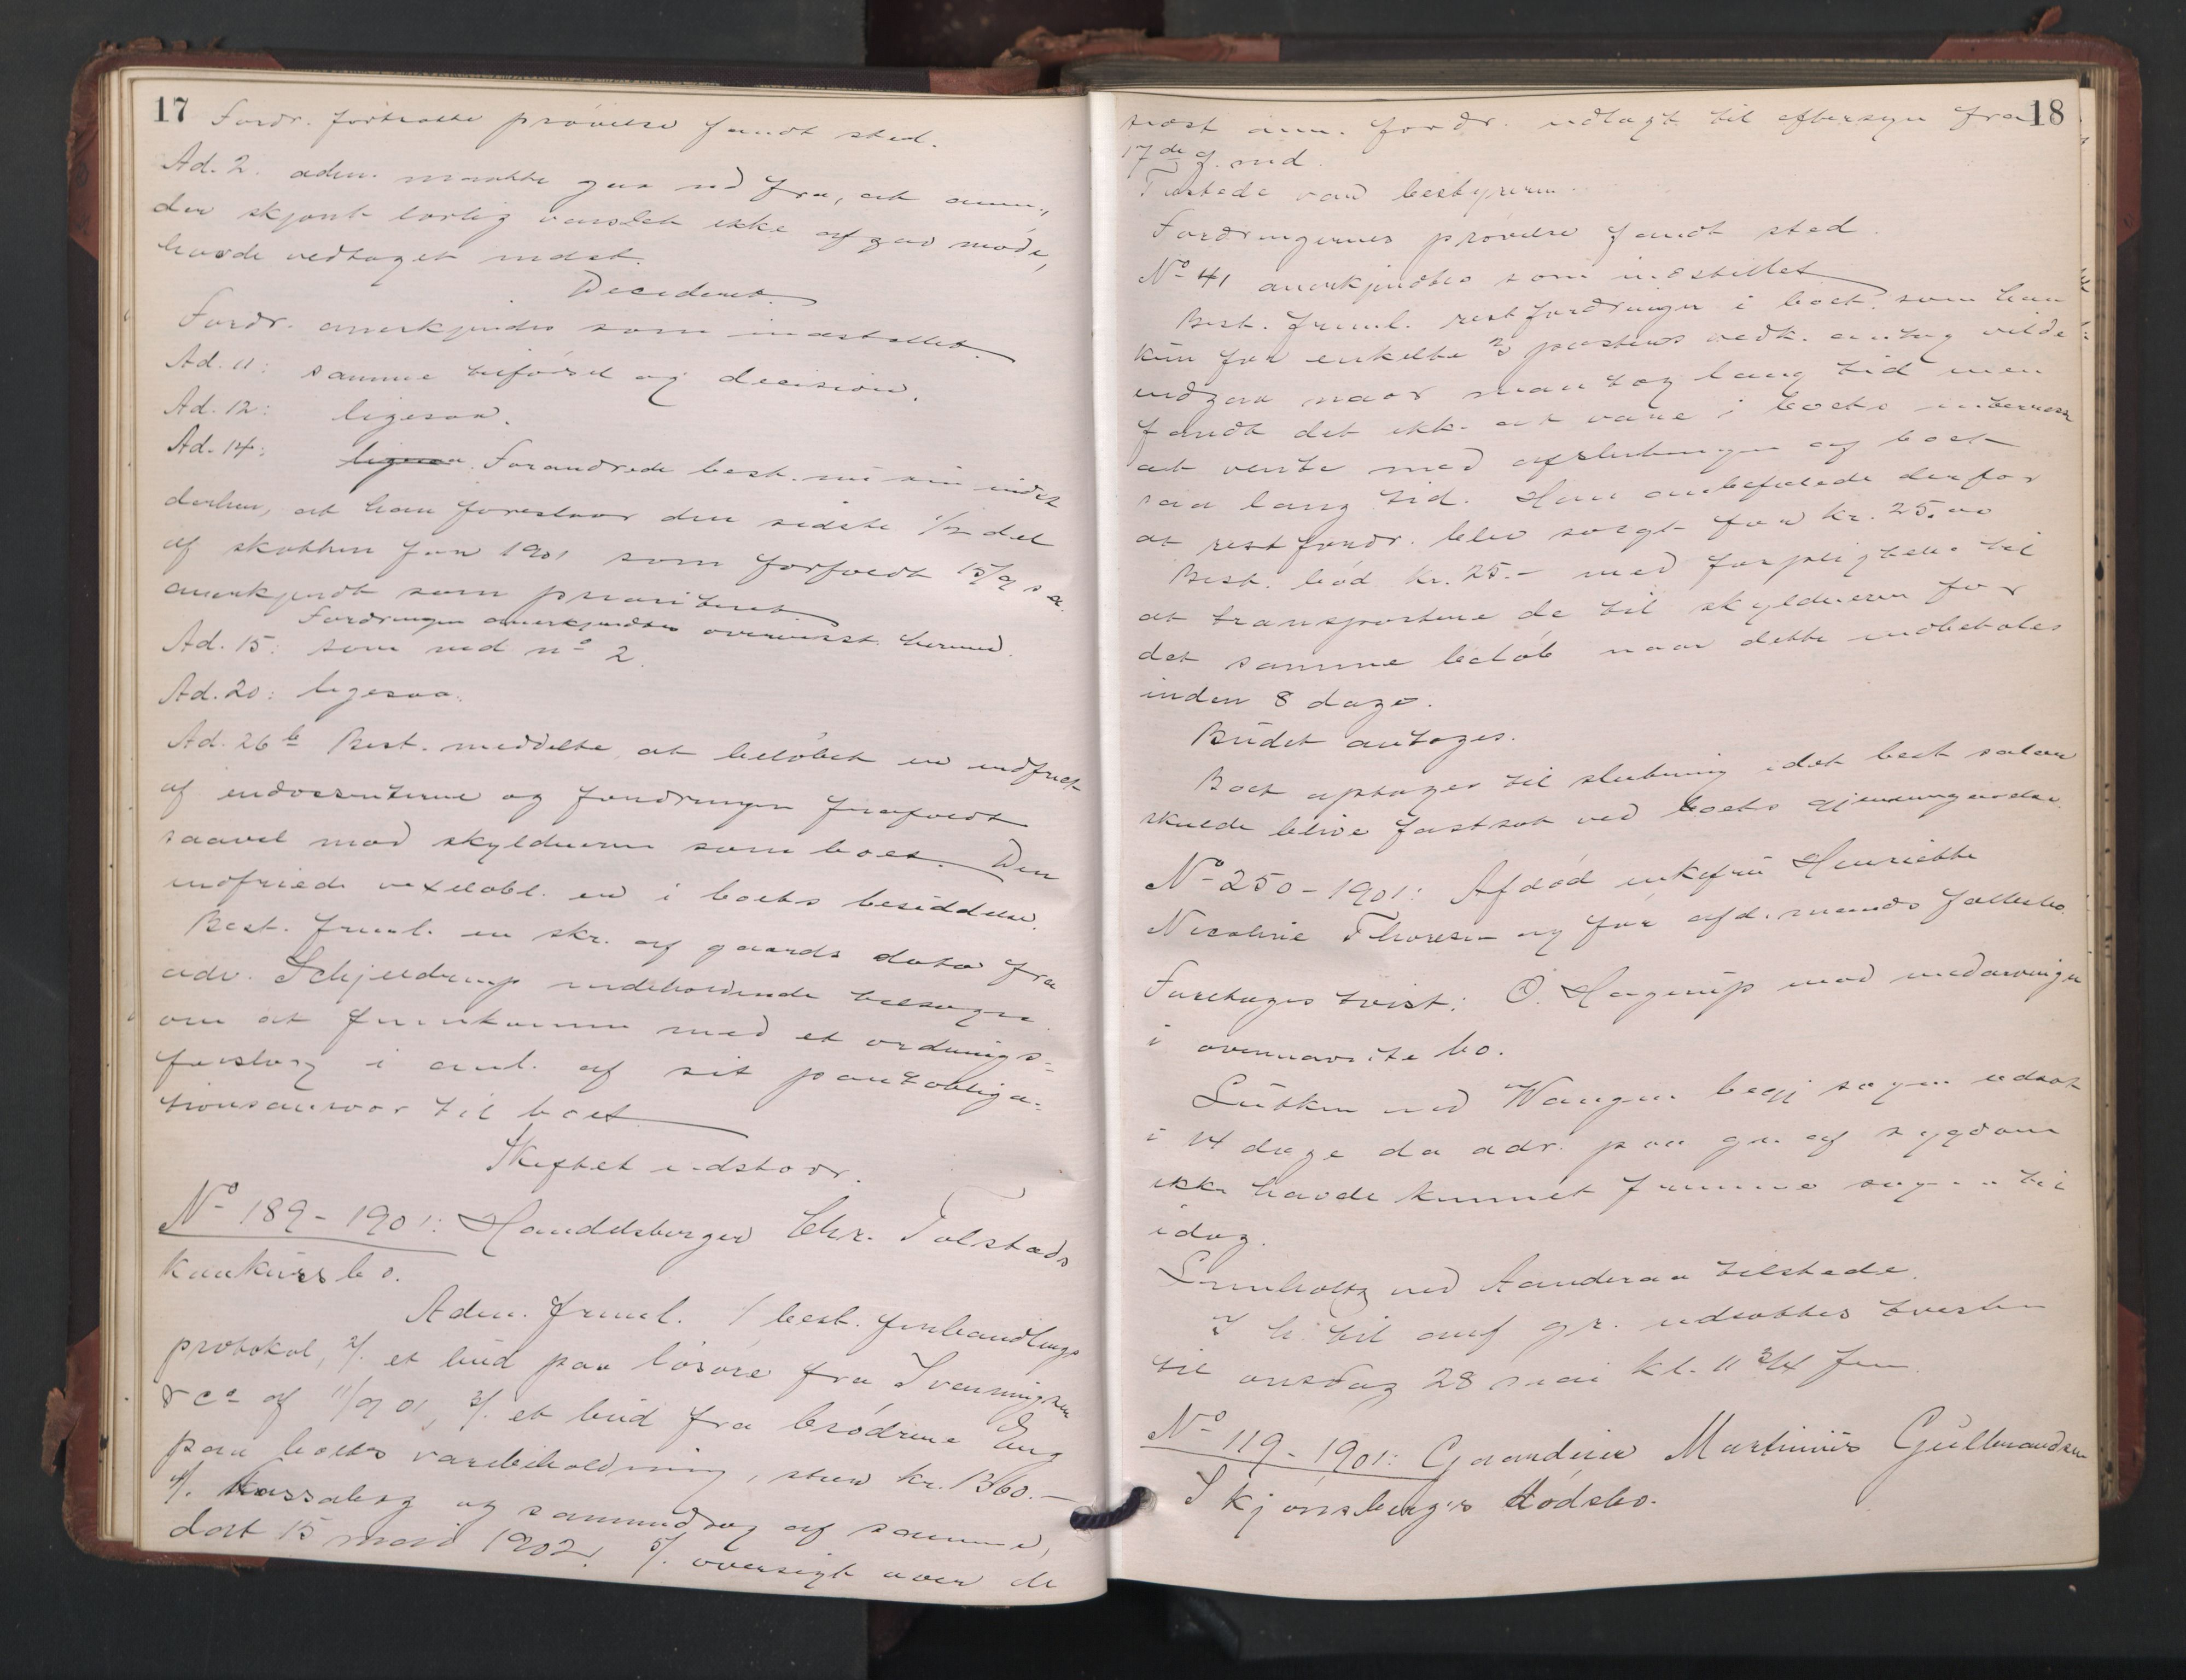 17
Fordr. fortsatte prøvelse fandt sted.
Ad. 2. adm. maatte gaa ud fra, at anm.,
der skjønt lovlig varslet ikke af gav møde,
havde vedtaget indst.
Decideret.
Fordr. anerkjendes som indstillet.
Ad. 11: samme tilførsel og decision.
Ad. 12: ligesaa.
Ad. 14: ligesaa. Forandrede best. nu sin indst
derhen, at han foreslaar den sidste 1/2 del
af skatten for 1901 som forfaldt 15/9 s. a.
anerkjendt som prioriteret
Fordringen anerkjendtes overensst. hermed.
Ad. 15: som ved no 2.
Ad. 20: ligesaa.
Ad. 26 b Best. meddelte, at beløbet er indfriet
af endossenterne og fordringen frafaldt
saavel mod skyldneren som boet. Den
indfriede vexelobl. er i boets besiddelse.
Best. freml. en skr. af gaards dato fra
adv. Schjeldrup indeholdende
om at fremkomme med et ordnings-
forslag i anl. af sit pantobliga-
tionsansvar til boet
Skiftet udstaar.
No 189 - 1901: Handelsborger Chr. Tolstads
konkursbo.
Adm. freml. 1/ best. forhandlings
protokol, 2/. et bud paa løsøre fra Svenningsen
& Co af 11/9 01, 3/. et bud fra brødrene Eng
paa boets varebeholdning, stort kr. 1360.-
4/. Kassabog og sammendrag af samme,
dat 15 mai 1902. 5/. oversigt over de
18
sidst anm. fordr. udlagt til eftersyn fra
17de d. md.
Tilstede var bestyreren.
Fordringernes prøvelse fandt sted.
No 41 anerkjendtes som indstillet
Best. freml. restfordringer i boet som han
kun for enkelte posters vedk. antog vilde
indgaa naar man tog lang tid men
fandt det ikk. at være i boets interesse
at vente med afslutningen af boet
saa lang tid. Han anbefalede derfor
at restfordr. blev solgt for kr. 25.00
Best. bød kr. 25.- med forpligtelse til
at transportere de til skyldneren for
det samme beløb naar dette indbetales
inden 8 dage.
Budet antoges.
Boet optoges til slutning idet best salær
skulde blive fastsat ved boets gjennemgaaelse.
No 250 - 1901: Afdød enkefru Henriette
Nicoline Thoresen og før afd. mands fællesbo.
Foretoges tvist: O. Hagerup mod medarvinger
i ovennævnte bo.
Lütken ved Wangen begj sagen udsat
i 14 dage da adv. paa gr. af sygdom
ikke havde kunnet fremme sagen til
idag.
Lumholtz ved Aanderaa tilstede.
I h. til anf gr. udsattes tvisten
til onsdag 28 mai kl. 11 3/4 fm.
No 119 - 1901: Gaardeier Martinius Gulbrandsen
Skjønsbergs dødsbo.